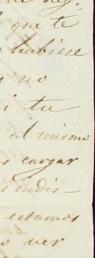 que te
hubiese
no
i tu
al mismo
cargar
indis-
estamos
ver